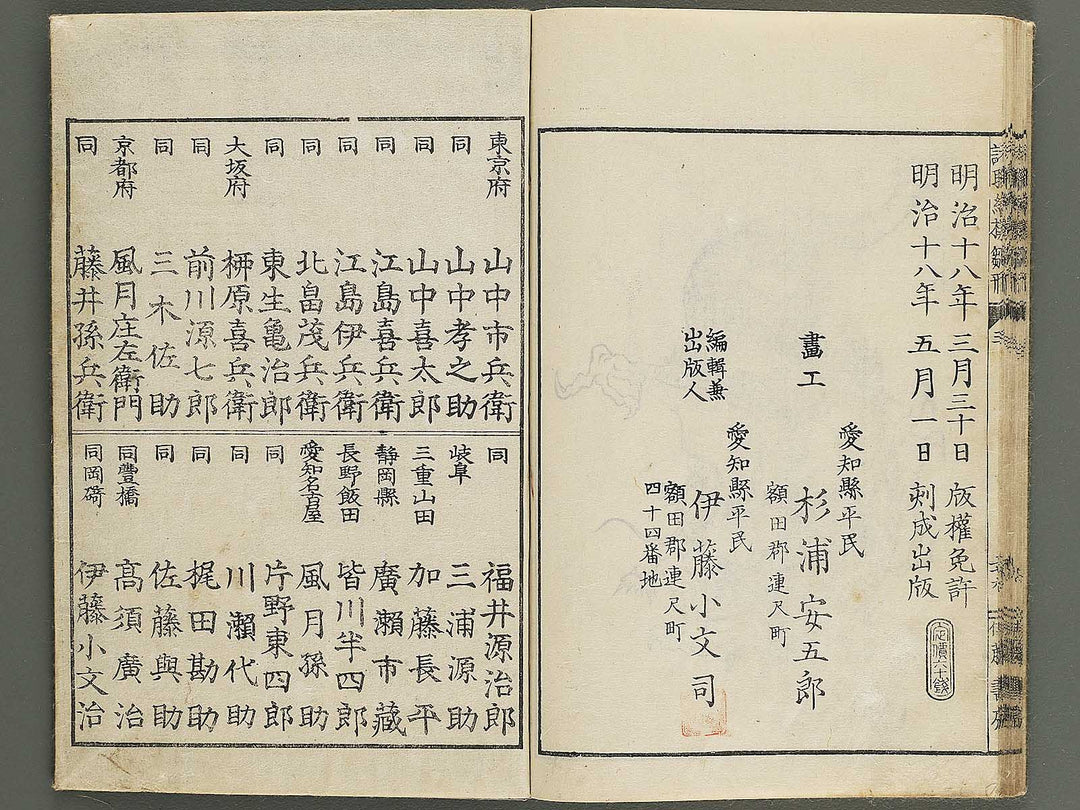 明治十八年 三月三十日 版權免許
明治十八年 五月一日 刻成出版
定價六十錢
愛知縣平民
畫工 杉浦安五郎
額田郡連尺町
愛知縣平民
編輯兼
出版人 伊藤小文司
額田郡連尺町
四十四番地
東京府 山中市兵衛
同 山中孝之助
同 山中喜太郎
同 江島喜兵衛
同 江島伊兵衛
同 北畠茂兵衛
同 東生亀治郎
大坂府 栁原喜兵衛
同 前川源七郎
同 三木佐助
京都府 風月庄左衛門
同 藤井孫兵衛
同 福井源治郎
岐阜 三浦源助
三重山田 加藤長平
静岡縣 廣瀬市藏
長野飯田 皆川半四郎
愛知名古屋 風月孫助
同 片野東四郎
同 川瀬代助
同 梶田勘助
同 佐藤與助
同豊橋 高須廣治
同岡﨑 伊藤小文治